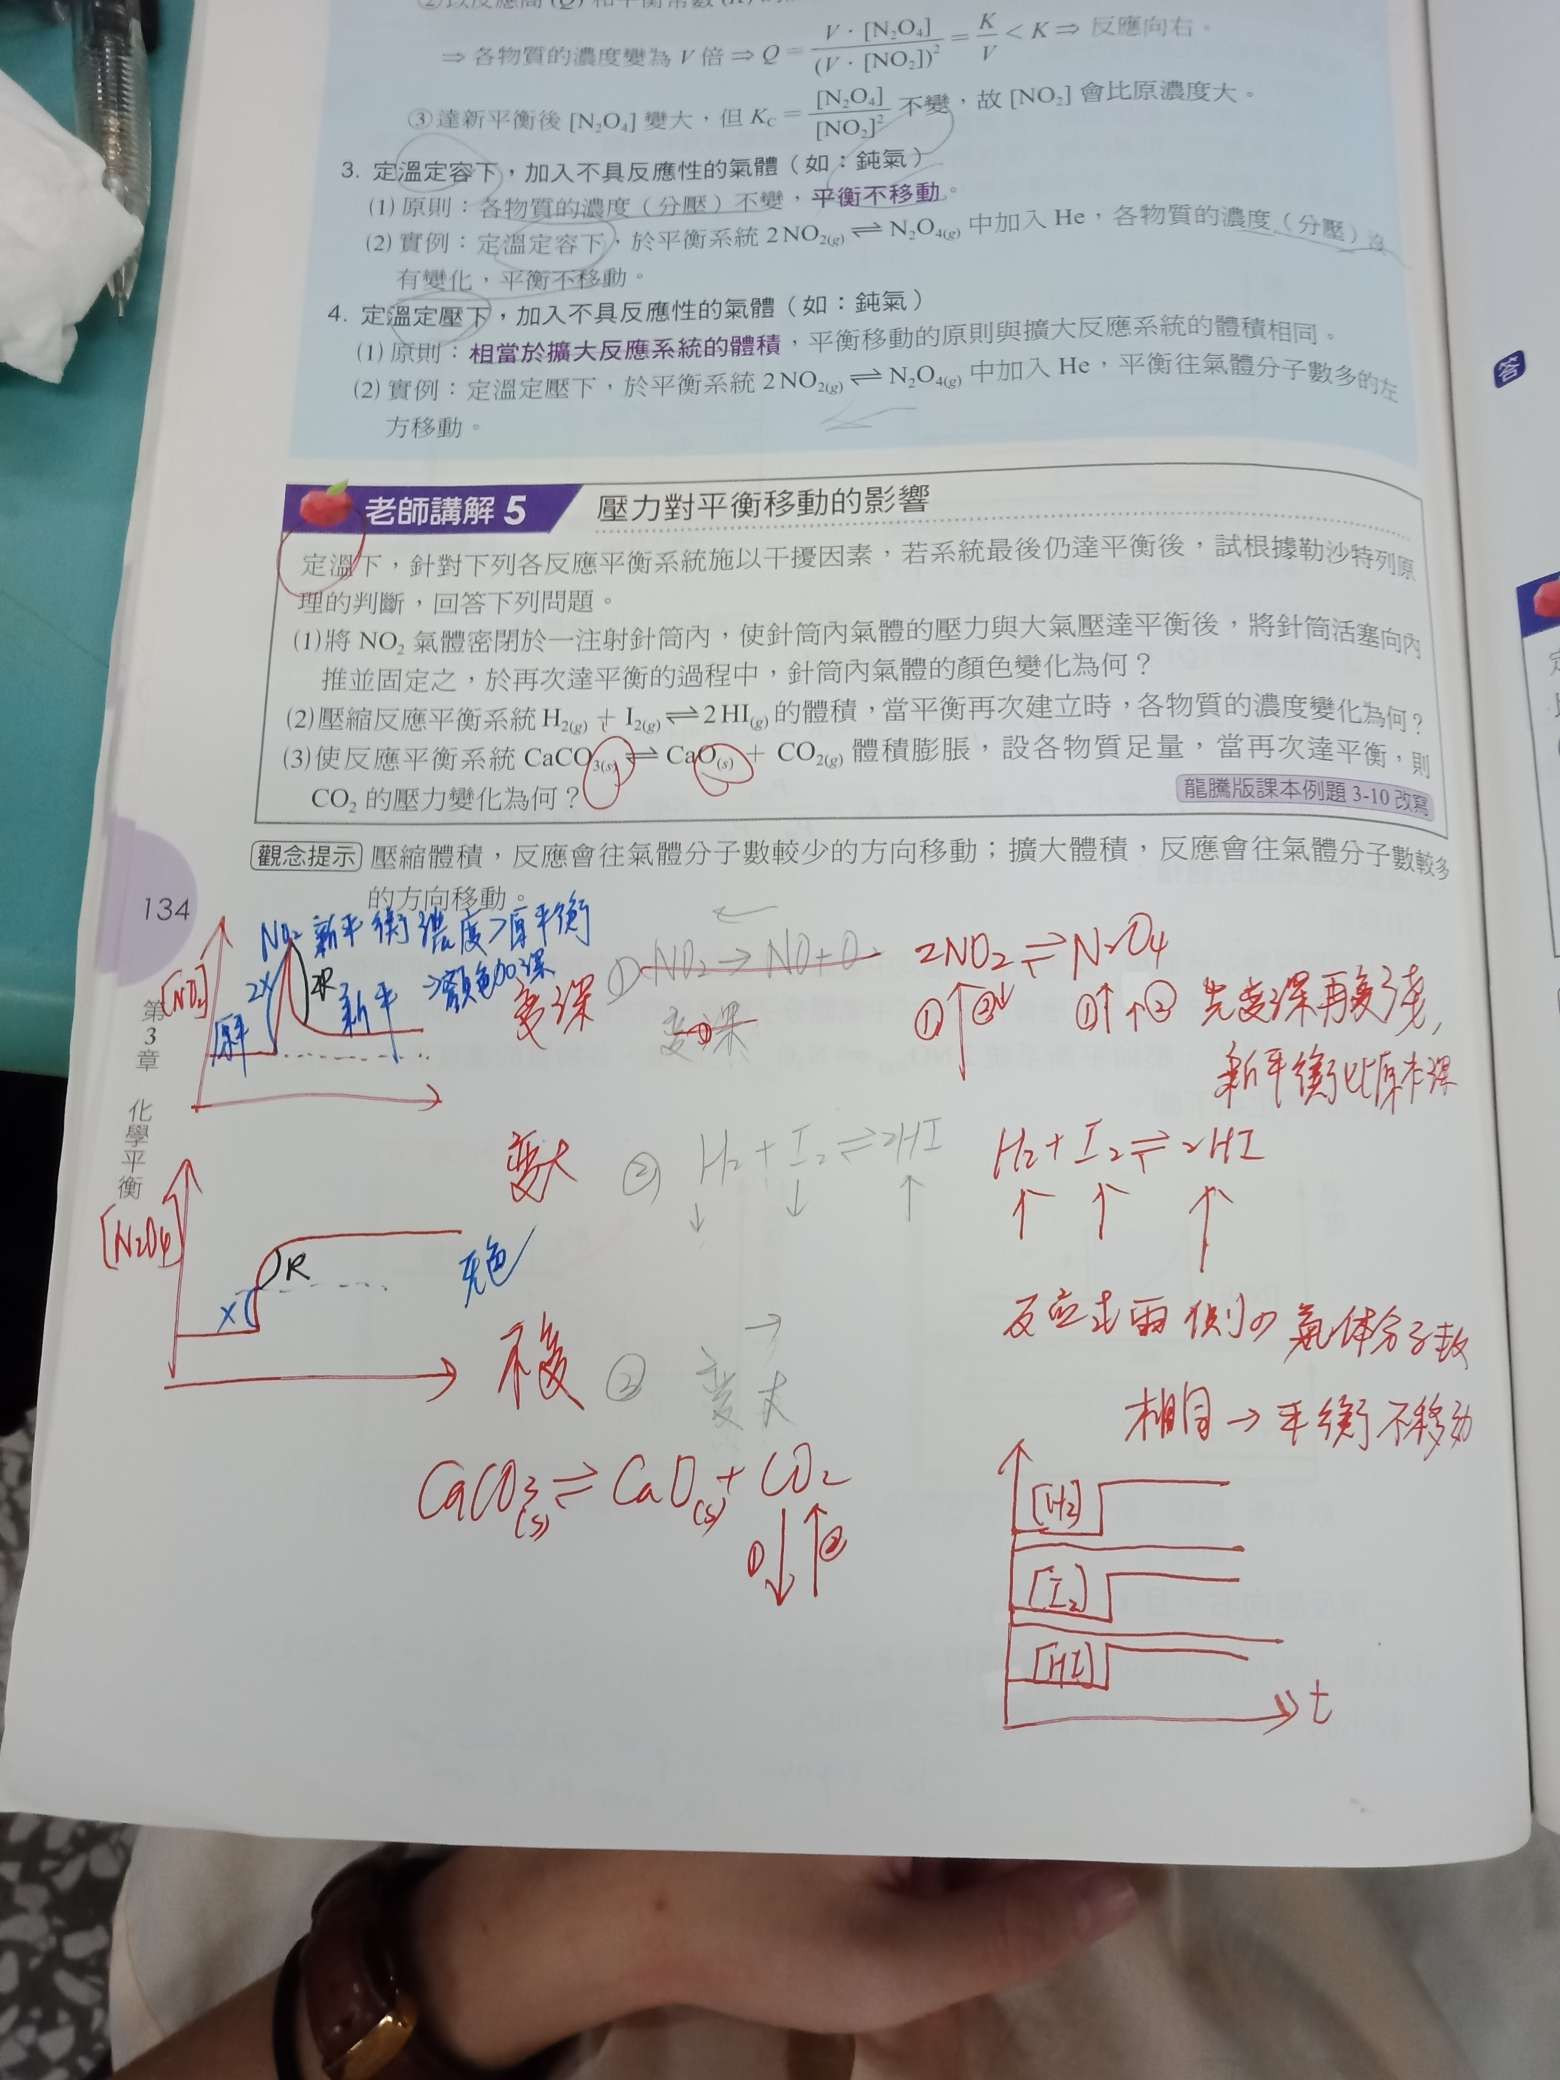 ⇒ 各物質的濃度變為 V 倍 ⇒ Q = V·[N₂O₄] / (V·[NO₂])² = K/V < K ⇒ 反應向右。
③達新平衡後 [N₂O₄] 變大，但 Kc = [N₂O₄] / [NO₂]² 不變，故 [NO₂] 會比原濃度大。
3. 定溫定容下，加入不具反應性的氣體（如：鈍氣）
(1) 原則：各物質的濃度（分壓）不變，平衡不移動。
(2) 實例：定溫定容下，於平衡系統 2 NO₂(g) ⇌ N₂O₄(g) 中加入 He，各物質的濃度（分壓）沒
有變化，平衡不移動。
4. 定溫定壓下，加入不具反應性的氣體（如：鈍氣）
(1) 原則：相當於擴大反應系統的體積，平衡移動的原則與擴大反應系統的體積相同。
(2) 實例：定溫定壓下，於平衡系統 2 NO₂(g) ⇌ N₂O₄(g) 中加入 He，平衡往氣體分子數多的左
方移動。
答
老師講解 5 壓力對平衡移動的影響
定溫下，針對下列各反應平衡系統施以干擾因素，若系統最後仍達平衡後，試根據勒沙特列原
理的判斷，回答下列問題。
(1)將 NO₂ 氣體密閉於一注射針筒內，使針筒內氣體的壓力與大氣壓達平衡後，將針筒活塞向內
推並固定之，於再次達平衡的過程中，針筒內氣體的顏色變化為何？
(2)壓縮反應平衡系統 H₂(g) + I₂(g) ⇌ 2 HI(g) 的體積，當平衡再次建立時，各物質的濃度變化為何？
(3)使反應平衡系統 CaCO₃(s) ⇌ CaO(s) + CO₂(g) 體積膨脹，設各物質足量，當再次達平衡，則
CO₂ 的壓力變化為何？
龍騰版課本例題 3-10 改寫
觀念提示 壓縮體積，反應會往氣體分子數較少的方向移動；擴大體積，反應會往氣體分子數較多
的方向移動。
134
第3章 化學平衡
NO₂ 新平衡濃度>原平衡
⇒顏色加深
[NO₂] 原 2X 2R 新平
變深
① NO₂ → NO + O
變深
2NO₂ ⇌ N₂O₄
①↑ ②↓ ①↑ ↑② 先變深再變淺,
新平衡比原本深
變大
② H₂ + I₂ ⇌ 2HI
↓ ↓ ↑
H₂ + I₂ ⇌ 2HI
↑ ↑ ↑
[N₂O₄] X R
无色
反应式兩側の氣体分子数
相同 → 平衡不移动
不变
② 變大
CaCO₃(s) ⇌ CaO(s) + CO₂
①↓ ↑②
[H₂]
[I₂]
[HI]
t